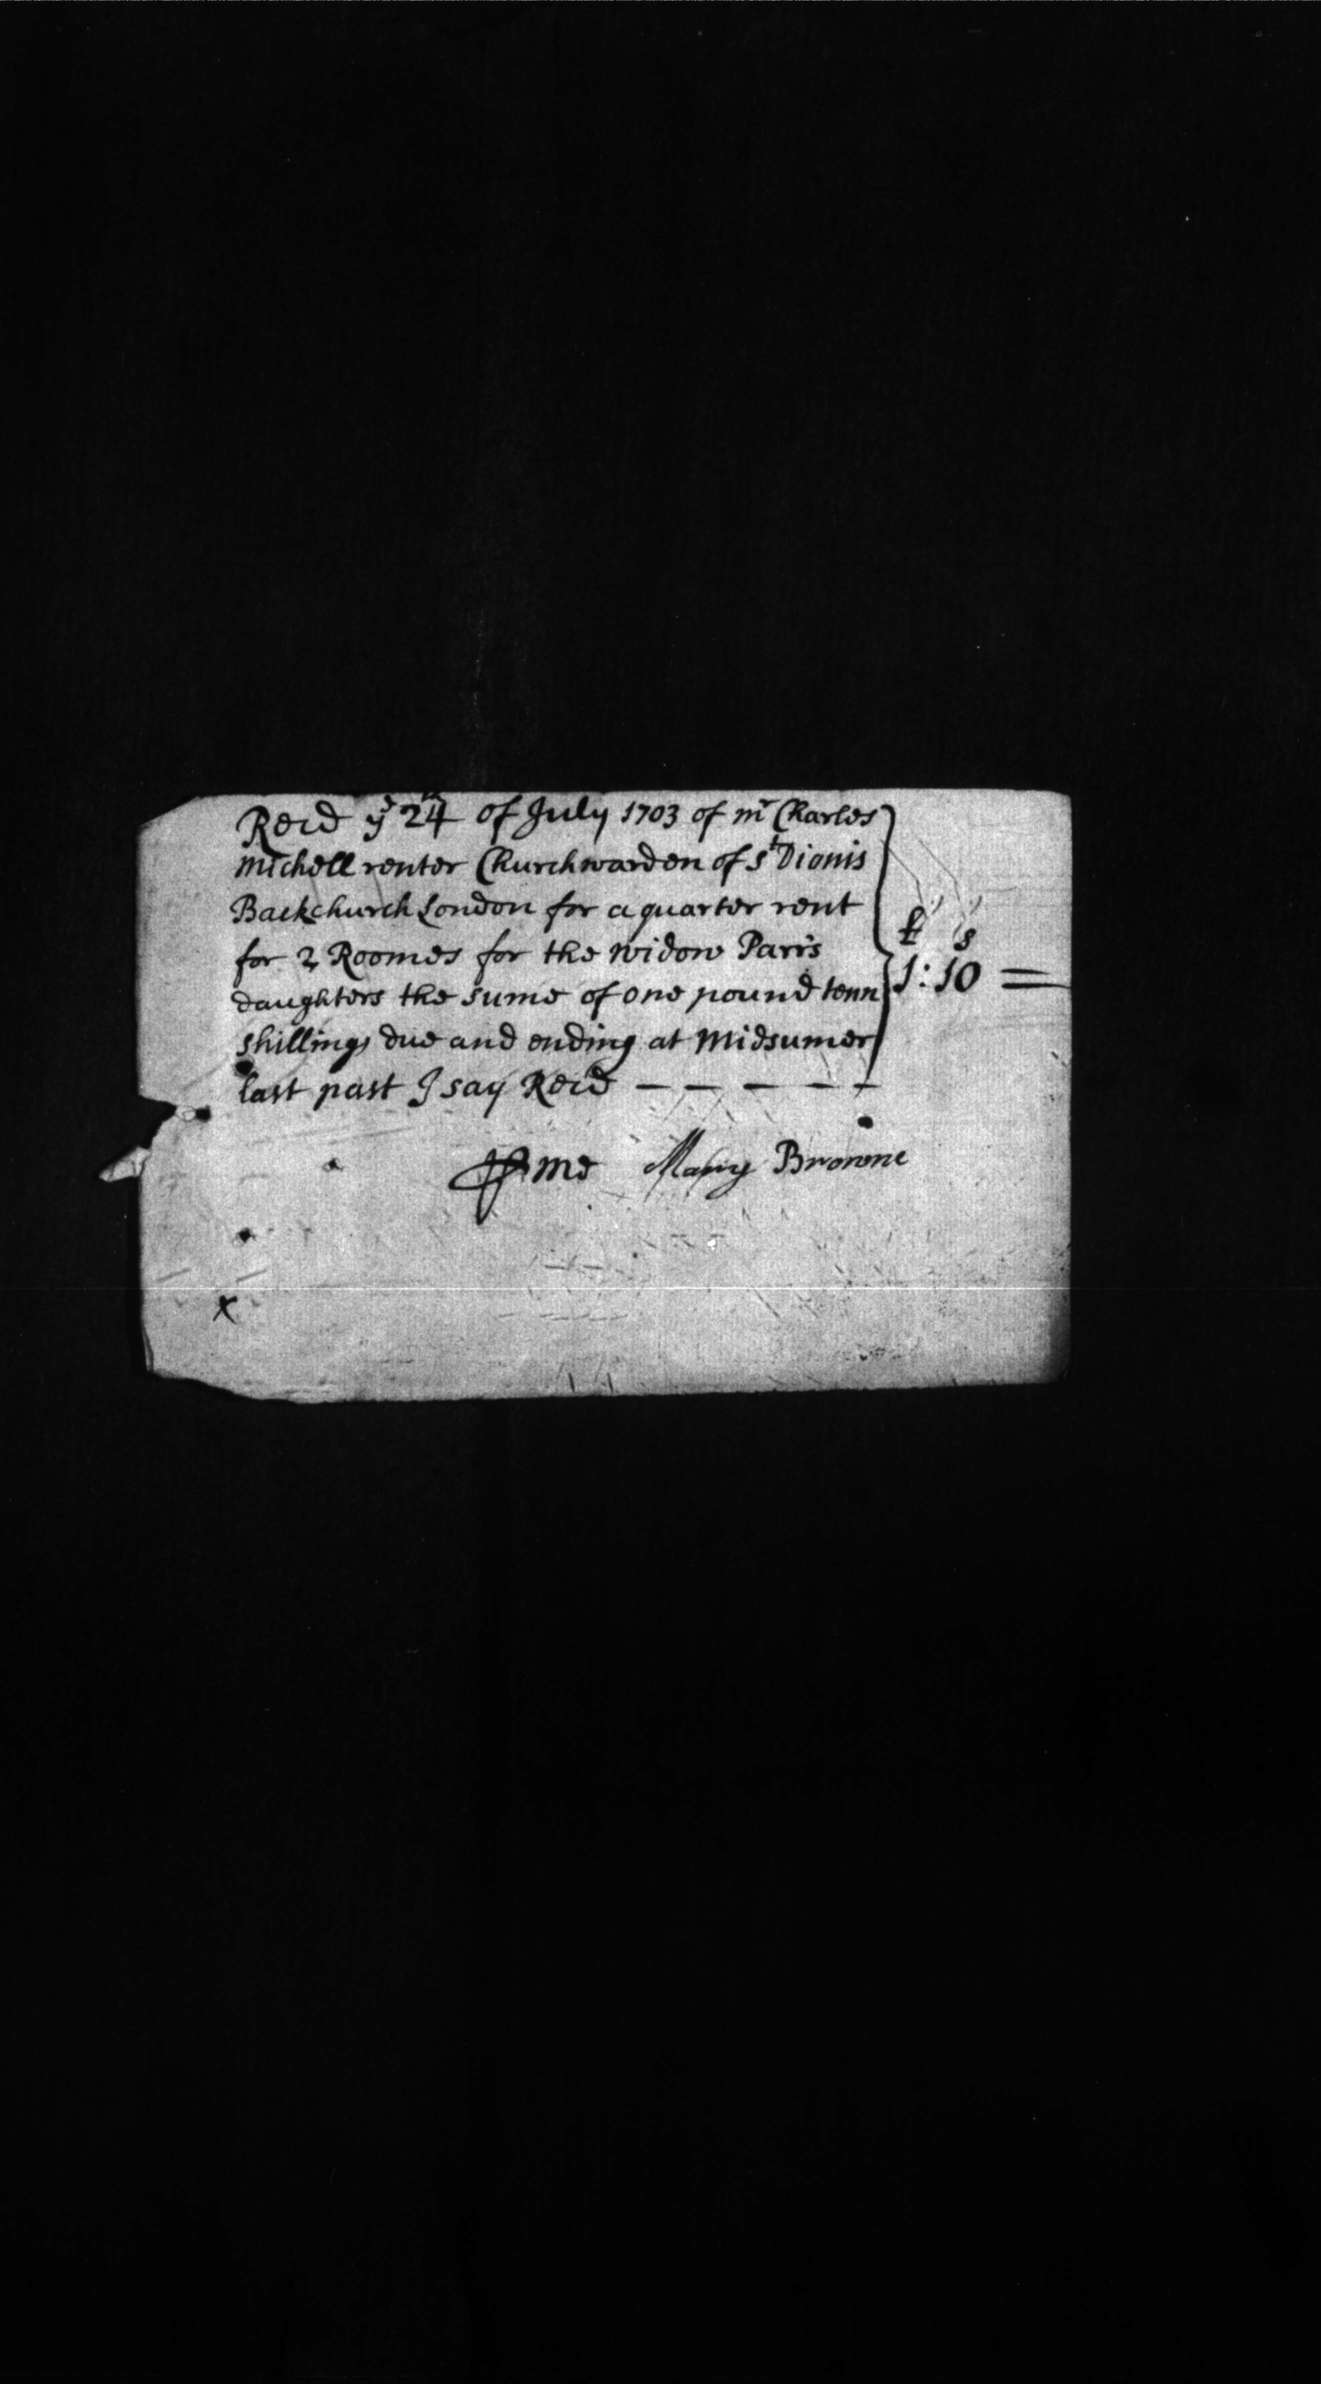 Recd ye 24th of July 1703 of mr Charles
Michell renter Churchwarden of st Dionis
Backchurch London for a quarter rent
for 2 Roomes for the widow Paris
daughters the sume of one pound tenn
shillings due and ending at Midsumer
last past I say Recd — — — — —
£ s
1:10 =
P me Mary Browne
x